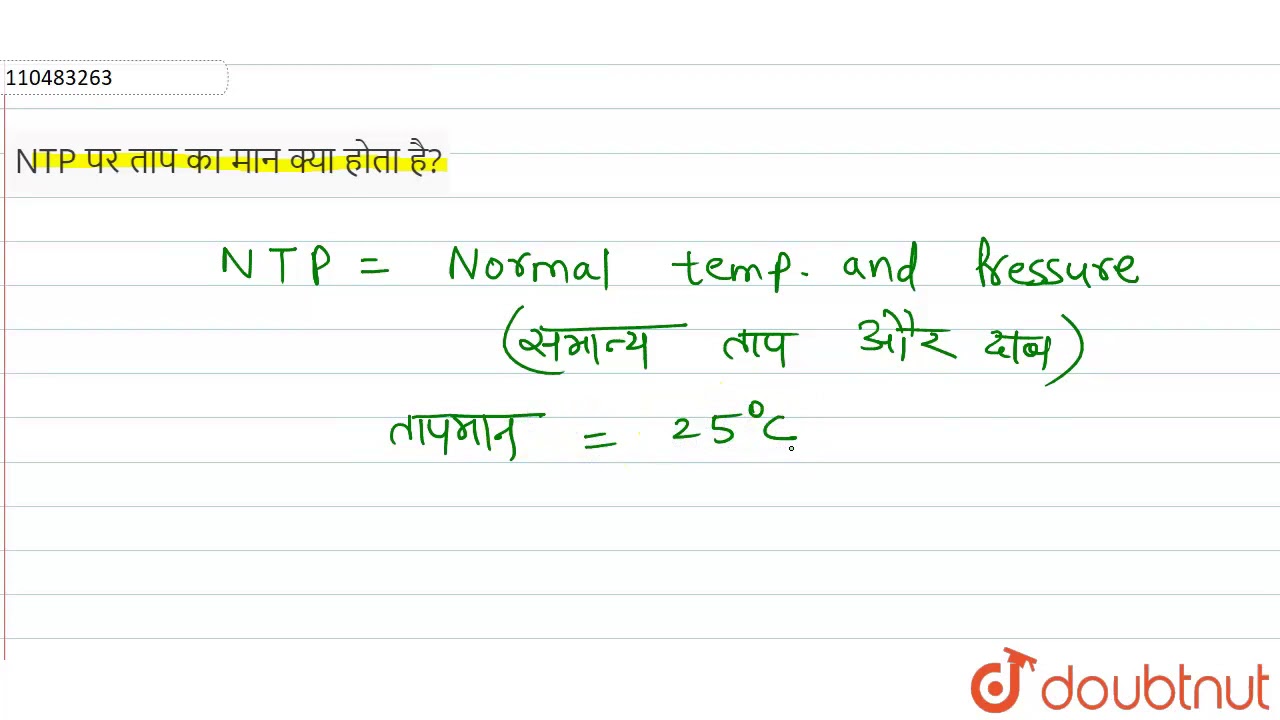 110483263
NTP पर ताप का मान क्या होता है?
NTP = Normal temp. and Pressure
(समान्य ताप और दाब)
तापमान = 25°C
doubtnut